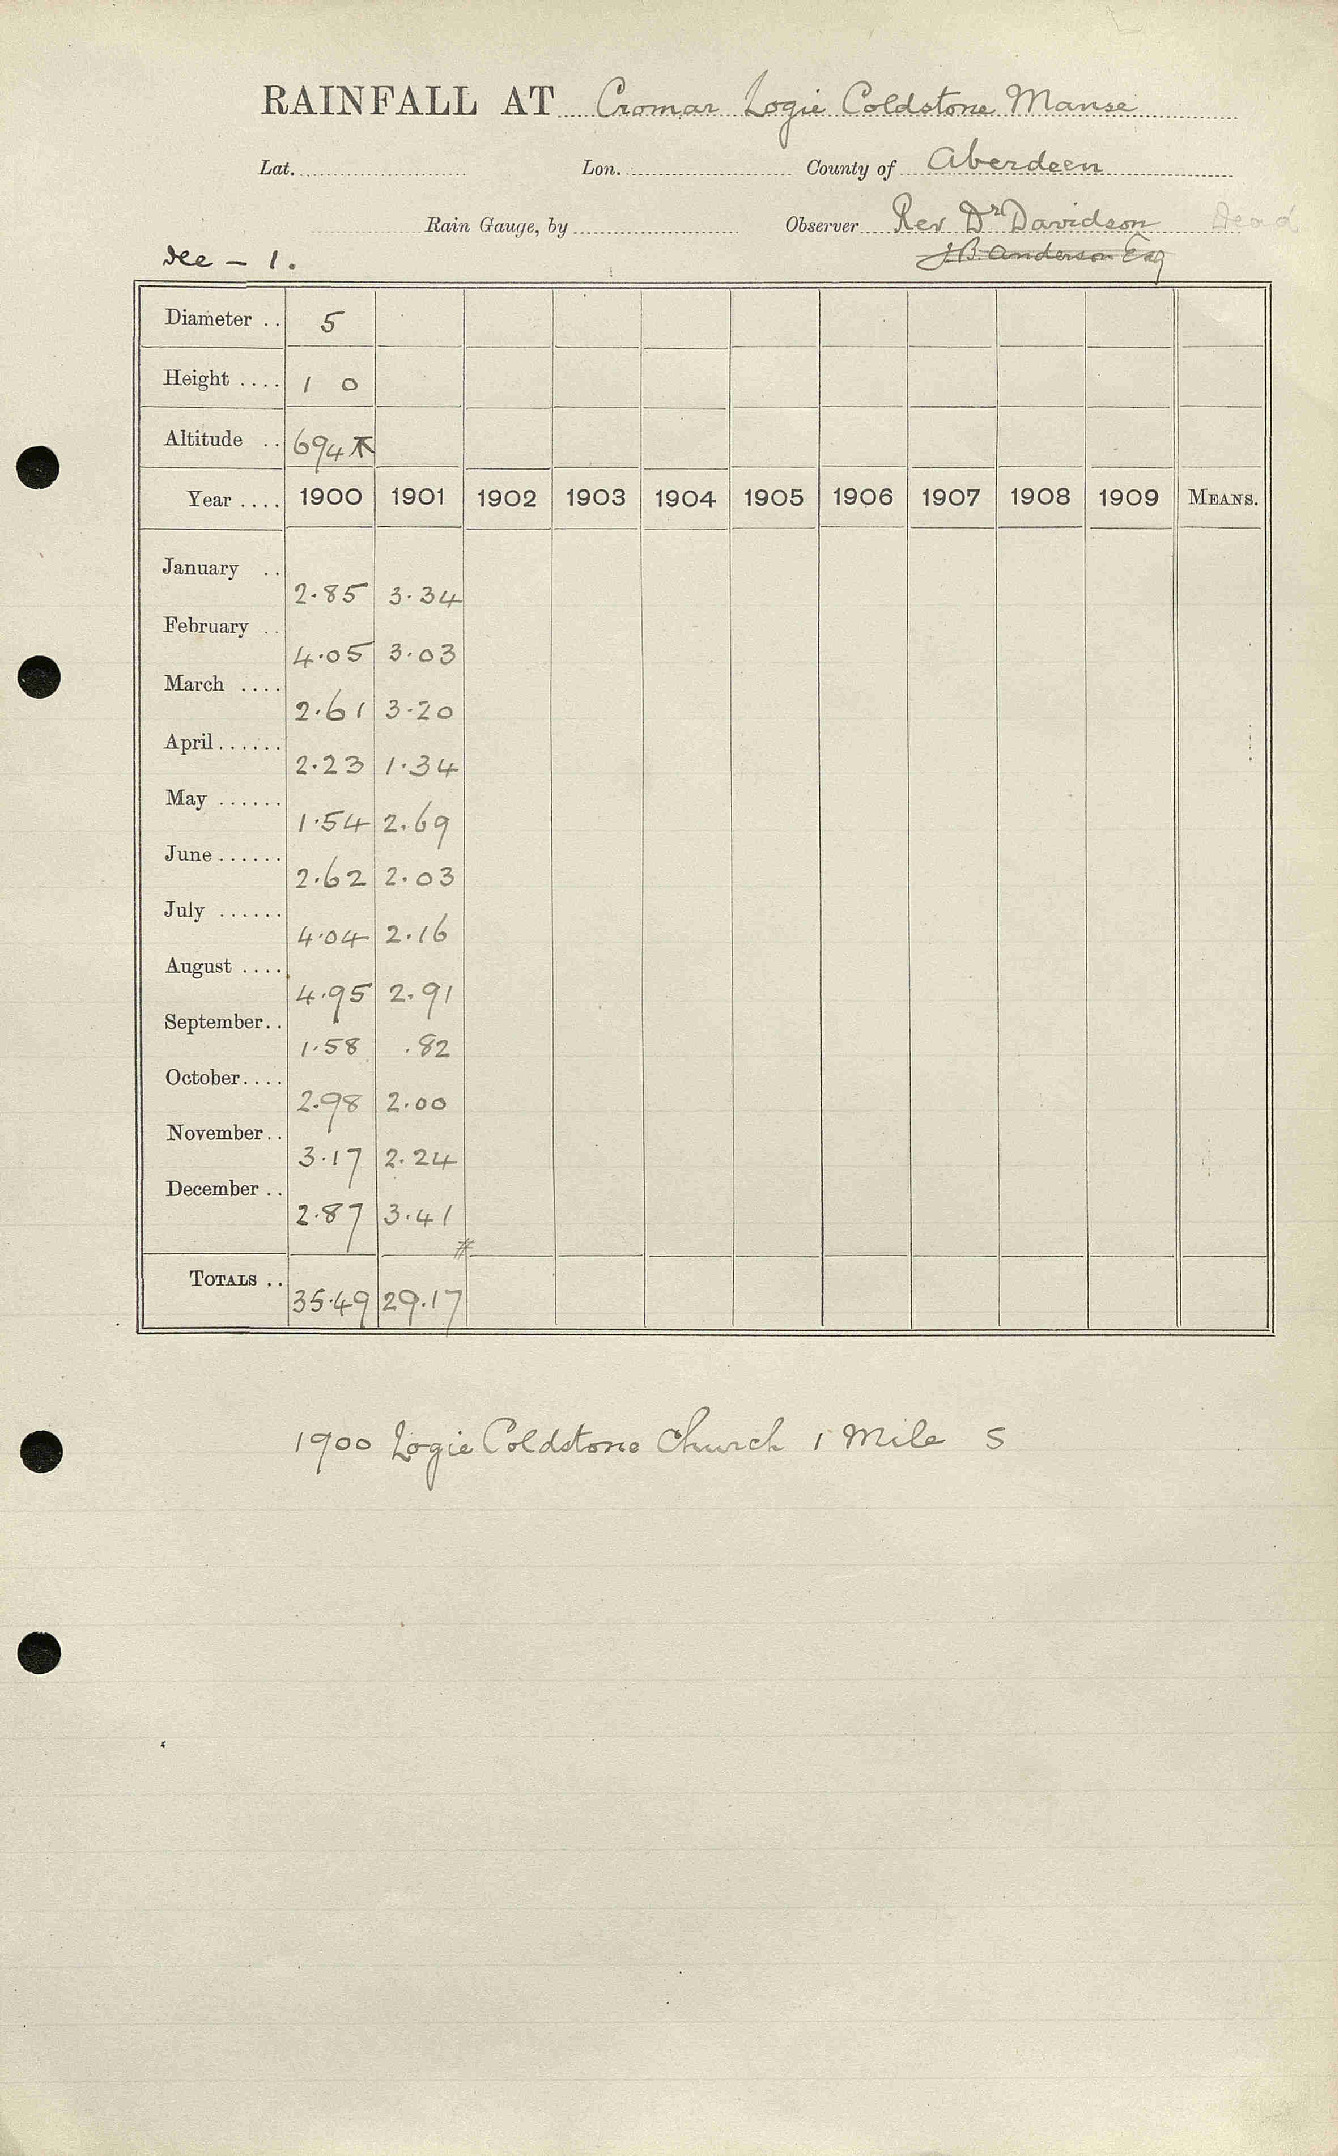 RAINFALL AT Cromar Logie Coldstone Manse
Lat. Lon. County of Aberdeen
Rain Gauge, by Observer Rev Dr Davidson Dead
Dee - 1. J.B. Anderson Esq
Diameter .. 5
Height .... 1 0
Altitude .. 694
Year .... 1900 1901 1902 1903 1904 1905 1906 1907 1908 1909 MEANS.
January .. 2.85 3.34
February .. 4.05 3.03
March .... 2.61 3.20
April...... 2.23 1.34
May ...... 1.54 2.69
June ...... 2.62 2.03
July ...... 4.04 2.16
August .... 4.95 2.91
September.. 1.58 .82
October.... 2.98 2.00
November.. 3.17 2.24
December .. 2.87 3.41
#
TOTALS .. 35.49 29.17
1900 Logie Coldstone Church 1 Mile S